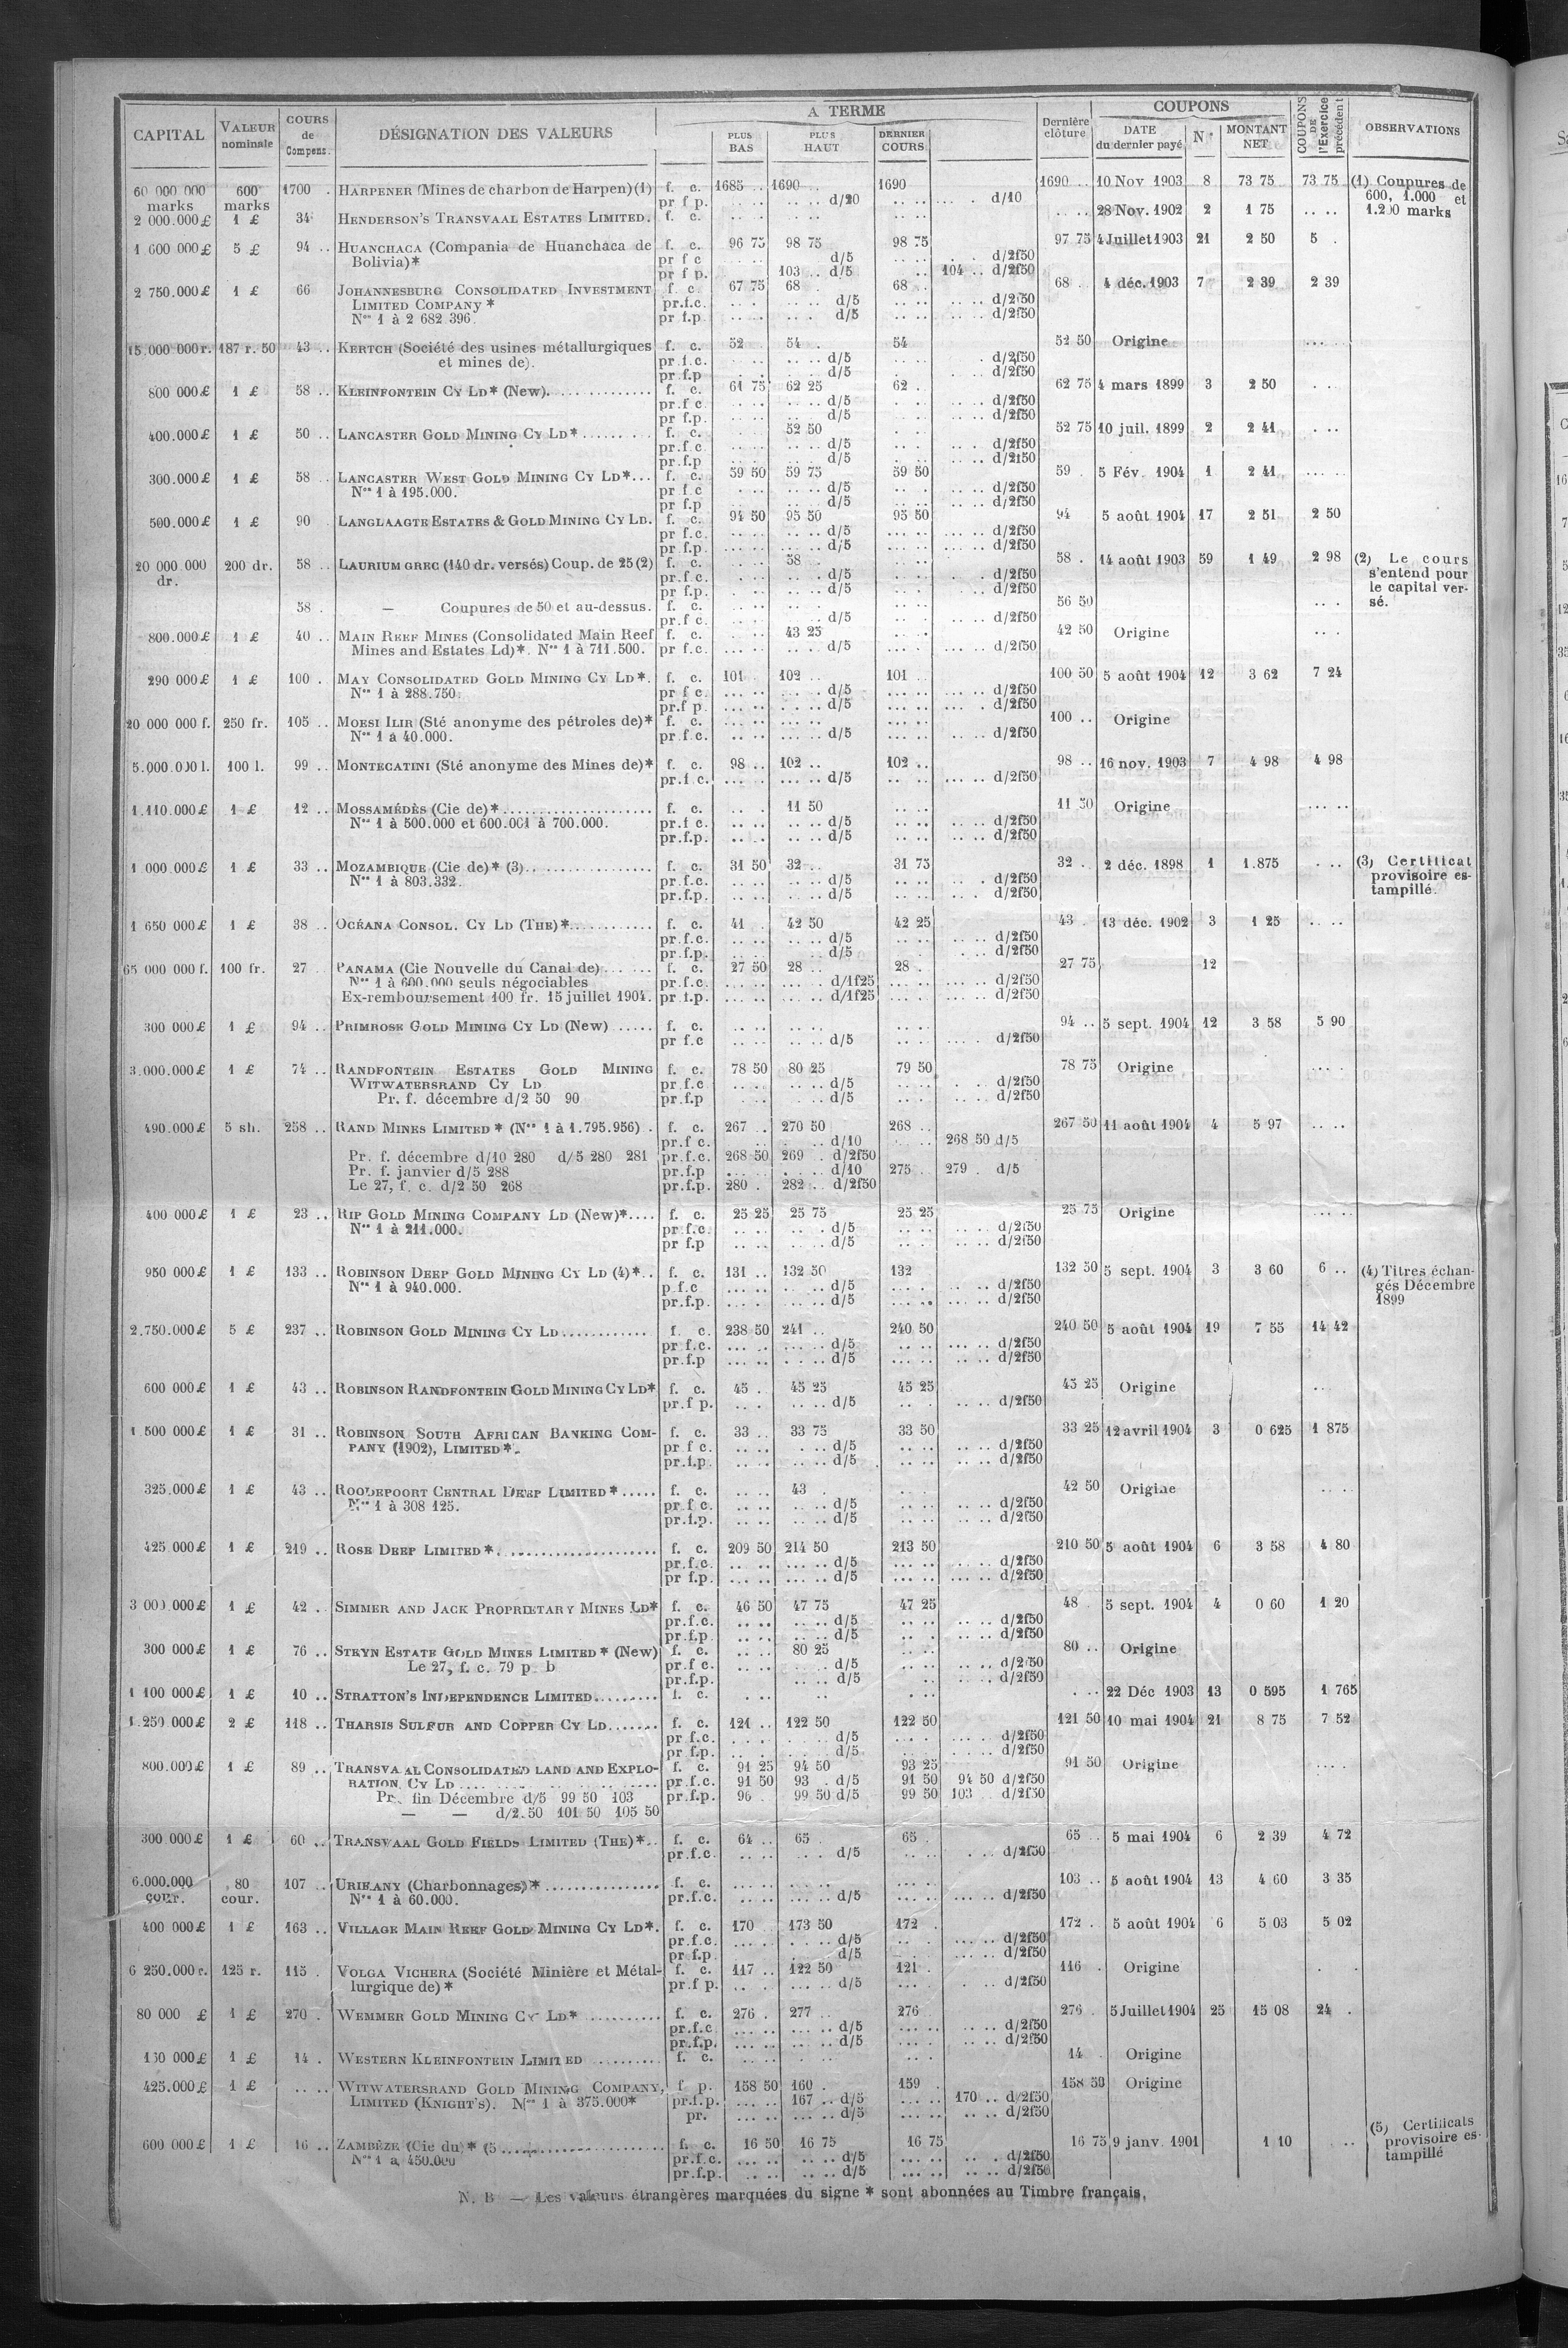 CAPITAL VALEUR nominale COURS de Compens. DÉSIGNATION DES VALEURS A TERME PLUS BAS PLUS HAUT DERNIER COURS Dernière clôture COUPONS DATE du dernier payé N° MONTANT NET COUPONS DE l'Exercice précédent OBSERVATIONS
60 000 000 600 1700 . HARPENER (Mines de charbon de Harpen)(1) f. c. 1685 .. 1690 .. 1690 1690 .. 10 Nov 1903 8 73 75 73 75 (1) Coupures de
marks marks pr f p. .. .. .. d/20 .. .. ... . d/10 600, 1.000 et
2 000.000 £ 1 £ 34 HENDERSON'S TRANSVAAL ESTATES LIMITED. f. c. .. .. .. .. .. .. .. .. 28 Nov. 1902 2 1 75 .. .. 1.200 marks
1 600 000 £ 5 £ 94 .. HUANCHACA (Compania de Huanchaca de f. c. 96 75 98 75 98 75 97 75 4 Juillet 1903 21 2 50 5 .
Bolivia)* pr f c .. .. d/5 .. .. . . d/2f50
pr f p. 103 .. d/5 .. 104 .. d/2f50
2 750.000 £ 1 £ 66 JOHANNESBURG CONSOLIDATED INVESTMENT f. c. 67 75 68 . 68 . 68 . 4 déc. 1903 7 2 39 2 39
LIMITED COMPANY * pr.f.c. .. . .. . d/5 .. .. .. .. d/2f50
Nos 1 à 2 682 396. pr f.p .. .. .. . d/5 .. .. .. .. d/2f50
15.000 000 r. 187 r. 50 43 .. KERTCH (Société des usines métallurgiques f. c. 52 54 . 54 52 50 Origine ... .
et mines de). pr.f.c. .. .. .. .. d/5 .. .. . d/2f50
pr.f.p . . .. .. d/5 . . .. d/2f50
800 000 £ 1 £ 58 .. KLEINFONTEIN CY LD* (New). f. c. 61 75 62 25 62 . 62 75 4 mars 1899 3 2 50 . ..
pr.f c. .. .. .. .. d/5 . . .. .. d/2f50
pr f.p. .. .. .. .. d/5 .. .. .. .. d/2f50
400.000 £ 1 £ 50 .. LANCASTER GOLD MINING CY LD* f. c. 52 50 52 75 10 juil. 1899 2 2 41 . ..
pr.f.c .. .. .. .. d/5 .. .. .. .. d/2f50
pr.f.p .. .. .. d/5 .. .. .. .. d/2f50
300.000 £ 1 £ 58 .. LANCASTER WEST GOLD MINING CY LD*... f. c. 59 50 59 75 59 50 59 . 5 Fév. 1904 1 2 41 ... ..
Nos 1 à 195.000. pr f c . .. .. .. d/5 .. . .. .. d/2f50
pr f.p .. .. .. .. d/5 .. .. .. .. d/2f50
500.000 £ 1 £ 90 LANGLAAGTE ESTATES & GOLD MINING CY LD. f. c. 94 50 95 50 95 50 94 5 août 1904 17 2 51 2 50
pr f.c. .. .. .. .. d/5 ... .. ... .. d/2f50
pr f.p. .. .. .. .. d/5 ... .. ... .. d/2f50
20 000 000 200 dr. 58 .. LAURIUM GREC (140 dr. versés) Coup. de 25 (2) f. c. .. .. 58 . .. .. 58 . 14 août 1903 59 1 49 2 98 (2) Le cours
dr. pr.f.c. .. .. .. . d/5 .. .. . d/2f50 s'entend pour
pr f.p. .. .. .. .. d/5 .. .. d/2f50 le capital ver-
58 . — Coupures de 50 et au-dessus. f. c. .. .. .. . .. .. 56 50 .. . sé.
pr.f c. .. .. d/5 .. .. .. .. d/2f50
800.000 £ 1 £ 40 .. MAIN REEF MINES (Consolidated Main Reef f. c. .. .. 43 25 .. . 42 50 Origine .. .
Mines and Estates Ld)*. Nos 1 à 711.500. pr f.c. ... .. .. . d/5 ... .. ... .. d/2f50
290 000 £ 1 £ 100 . MAY CONSOLIDATED GOLD MINING CY LD*. f. c. 101 102 .. 101 100 50 5 août 1904 12 3 62 7 24
Nos 1 à 288.750. pr f c. ... .. .. .. d/5 ... .. ... .. d/2f50
pr.f p. ... .. .. .. d/5 ... .. ... . d/2f50
20 000 000 f. 250 fr. 105 .. MOESI ILIR (Sté anonyme des pétroles de)* f. c. .. .. ... .. ... .. 100 .. Origine
Nos 1 à 40.000. pr.f.c. .. .. ... .. d/5 ... .. .. .. d/2f50
5.000.000 l. 100 l. 99 .. MONTECATINI (Sté anonyme des Mines de)* f. c. 98 .. 102 .. 102 .. 98 .. 16 nov. 1903 7 4 98 4 98
pr.f.c. ... .. ... .. d/5 .. .. ... .. d/2f50
1.110.000 £ 1 £ 12 .. MOSSAMÉDÈS (Cie de)* f. c. .. . 11 50 .. .. 11 50 Origine ... ..
Nos 1 à 500.000 et 600.001 à 700.000. pr.f c. .. .. .. .. d/5 .. .. .. .. d/2f50
pr.f.p. .. .. .. .. d/5 .. .. .. .. d/2f50
1 000.000 £ 1 £ 33 .. MOZAMBIQUE (Cie de)* (3) f. c. 31 50 32 .. 31 75 32 . 2 déc. 1898 1 1.875 . .. (3) Certificat
Nos 1 à 803.332. pr.f.c. .. .. .. .. d/5 .. .. .. . d/2f50 provisoire es-
pr.f.p. .. .. .. .. d/5 .. .. .. . d/2f50 tampillé.
1 650 000 £ 1 £ 38 .. OCÉANA CONSOL. CY LD (THE)* f. c. 41 . 42 50 42 25 43 . 13 déc. 1902 3 1 25 .. ..
pr.f.c. .. .. .. .. d/5 .. .. .. .. d/2f50
pr.f.p. .. .. .. .. d/5 .. . . .. d/2f50
65 000 000 f. 100 fr. 27 .. PANAMA (Cie Nouvelle du Canal de) f. c. 27 50 28 .. 28 . 27 75 12
Nos 1 à 600.000 seuls négociables pr.f.c. ... .. ... . d/1f25 ... .. ... .. d/2f50
Ex-remboursement 100 fr. 15 juillet 1904. pr.f.p. ... .. ... .. d/1f25 ... .. ... .. d/2f50
300 000 £ 1 £ 94 .. PRIMROSE GOLD MINING CY LD (New) f. c. .. .. .. .. .. .. 94 .. 5 sept. 1904 12 3 58 5 90
pr f.c .. .. .. .. d/5 .. .. ... . d/2f50
3.000.000 £ 1 £ 74 .. RANDFONTEIN ESTATES GOLD MINING f. c. 78 50 80 25 79 50 78 75 Origine ... .
WITWATERSRAND CY LD pr.f.c .. .. .. .. d/5 .. . . . d/2f50
Pr. f. décembre d/2 50 90 pr.f.p .. . .. .. d/5 .. . .. . d/2f50
490.000 £ 5 sh. 258 .. RAND MINES LIMITED * (Nos 1 à 1.795.956) . f. c. 267 .. 270 50 268 .. 267 50 11 août 1904 4 5 97 .. ..
pr.f c. .. . .. d/10 .. .. 268 50 d/5
Pr. f. décembre d/10 280 d/5 280 281 pr.f.c. 268 50 269 . d/2f50
Pr. f. janvier d/5 288 pr.f.p ... . . .. d/10 275 . 279 . d/5
Le 27, f. c. d/2 50 268 pr.f.p. 280 . 282 .. d/2f50
400 000 £ 1 £ 23 .. RIP GOLD MINING COMPANY LD (New)*.... f. c. 25 25 25 75 25 25 25 75 Origine ... ..
Nos 1 à 211.000. pr.f.c. .. .. .. . d/5 .. .. .. .. d/2f50
pr f.p .. .. .. .. d/5 .. . .. .. d/2f50
950 000 £ 1 £ 133 .. ROBINSON DEEP GOLD MINING CY LD (4)*.. f. c. 131 .. 132 50 132 132 50 5 sept. 1904 3 3 60 6 .. (4) Titres échan-
Nos 1 à 940.000. p.f.c ... .. .. .. d/5 ... . ... .. d/2f50 gés Décembre
pr.f.p. ... . .. .. d/5 ... .. ... .. d/2f50 1899
2.750.000 £ 5 £ 237 .. ROBINSON GOLD MINING CY LD f. c. 238 50 241 .. 240 50 240 50 5 août 1904 19 7 55 14 42
pr f.c. ... .. ... .. d/5 ... .. ... .. d/2f50
pr.f.p ... .. . .. d/5 ... .. .. .. d/2f50
600 000 £ 1 £ 43 .. ROBINSON RANDFONTEIN GOLD MINING CY LD* f. c. 45 . 45 25 45 25 45 25 Origine . ..
pr.f p. .. . .. .. d/5 .. . .. .. d/2f50
1 500 000 £ 1 £ 31 .. ROBINSON SOUTH AFRICAN BANKING COM- f. c. 33 .. 33 75 33 50 33 25 12 avril 1904 3 0 625 1 875
PANY (1902), LIMITED*. pr f c. .. .. . .. d/5 .. .. .. .. d/2f50
pr.f.p. .. .. .. .. d/5 .. .. .. .. d/2f50
325.000 £ 1 £ 43 .. ROODEPOORT CENTRAL DEEP LIMITED * f. c. .. .. 43 . . . 42 50 Origine .. .
Nos 1 à 308 125. pr.f c. .. .. .. .. d/5 .. .. .. .. d/2f50
pr.f.p. .. .. .. .. d/5 .. .. .. .. d/2f50
425.000 £ 1 £ 219 .. ROSE DEEP LIMITED * f. c. 209 50 214 50 213 50 210 50 5 août 1904 6 3 58 4 80
pr.f.c. ... .. ... .. d/5 ... .. .. .. d/2f50
pr f.p. ... .. ... .. d/5 ... .. ... .. d/2f50
3 000.000 £ 1 £ 42 .. SIMMER AND JACK PROPRIETARY MINES LD* f. c. 46 50 47 75 47 25 48 . 5 sept. 1904 4 0 60 1 20
pr.f.c. .. .. .. .. d/5 .. . .. .. d/2f50
pr.f.p .. .. .. .. d/5 .. . .. .. d/2f50
300 000 £ 1 £ 76 .. STEYN ESTATE GOLD MINES LIMITED * (New) f. c. .. .. 80 25 .. .. 80 .. Origine
Le 27, f. c. 79 p b pr.f c. .. .. .. . d/5 .. . .. .. d/2f50
pr.f.p. .. .. d/5 .. .. . d/2f50
1 100 000 £ 1 £ 10 .. STRATTON'S INDEPENDENCE LIMITED f. c. . .. .. . .. . .. 22 Déc 1903 13 0 595 1 765
1.250 000 £ 2 £ 118 .. THARSIS SULFUR AND COPPER CY LD f. c. 121 .. 122 50 122 50 121 50 10 mai 1904 21 8 75 7 52
pr f.c. . . . . .. d/5 ... . ... . d/2f50
pr f.p. .. . . .. d/5 ... . .. .. d/2f50
800.000 £ 1 £ 89 .. TRANSVAAL CONSOLIDATED LAND AND EXPLO- f. c. 91 25 94 50 93 25 91 50 Origine ... .
RATION CY LD pr.f.c. 91 50 93 . d/5 91 50 94 50 d/2f50
Pr. fin Décembre d/5 99 50 103 pr.f.p. 96 . 99 50 d/5 99 50 103 d/2f50
— — d/2.50 101 50 105 50
300 000 £ 1 £ 60 .. TRANSVAAL GOLD FIELDS LIMITED (THE)*.. f. c. 64 .. 65 . 65 . 65 .. 5 mai 1904 6 2 39 4 72
pr.f.c. .. .. .. . d/5 .. .. . .. d/2f50
6.000.000 80 107 .. URIKANY (Charbonnages)* f. c. ... .. ... .. ... .. 103 .. 5 août 1904 13 4 60 3 35
cour. cour. Nos 1 à 60.000. pr.f.c. ... .. ... .. d/5 ... .. ... .. d/2f50
400 000 £ 1 £ 163 .. VILLAGE MAIN REEF GOLD MINING CY LD*. f. c. 170 173 50 172 . 172 . 5 août 1904 6 5 03 5 02
pr.f.c. ... .. . .. d/5 .. . ... .. d/2f50
pr f.p . d/5 ... .. d/2f50
6 250.000 r. 125 r. 115 . VOLGA VICHERA (Société Minière et Métal- f. c. 117 .. 122 50 121 . 116 . Origine . .
lurgique de)* pr.f p. .. . ... .. d/5 ... . . .. d/2f50
80 000 £ 1 £ 270 . WEMMER GOLD MINING CY LD* f. c. 276 . 277 .. 276 276 . 5 Juillet 1904 25 15 08 24 .
pr.f.c ... .. ... .. d/5 ... .. .. .. d/2f50
pr.f.p. ... .. ... .. d/5 ... .. .. .. d/2f50
150 000 £ 1 £ 14 . WESTERN KLEINFONTEIN LIMITED f. c. .. .. . .. .. . 14 . Origine
425.000 £ 1 £ .. .. WITWATERSRAND GOLD MINING COMPANY, f p. 158 50 160 . 159 . 158 50 Origine
LIMITED (KNIGHT'S). Nos 1 à 375.000* pr.f.p. ... .. 167 .. d/5 ... .. 170 .. d/2f50
pr. ... .. ... .. d/5 ... .. .. .. d/2f50
600 000 £ 1 £ 16 .. ZAMBÈZE (Cie du)* (5 f. c. 16 50 16 75 16 75 16 75 9 janv. 1901 1 10 .. (5) Certificats
Nos 1 à 450.000 pr.f.c. .. .. .. .. d/5 ... .. .. . d/2f50 provisoire es-
pr.f.p. .. .. .. .. d/5 ... .. .. .. d/2f50 tampillé
N. B — Les valeurs étrangères marquées du signe * sont abonnées au Timbre français.